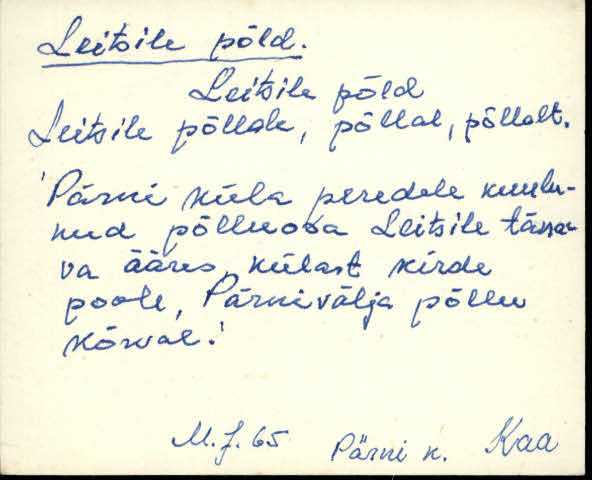 Leitsile põld.
Leitsile põld
Leitsile põllale, põllal, põllalt.
'Pärni küla peredele kuulu-
nud põlluosa Leitsile täna-
va ääres, külast kirde
poole, Pärnivälja põllu
kõrval.'
M.J. 65 Pärni k. Kaa